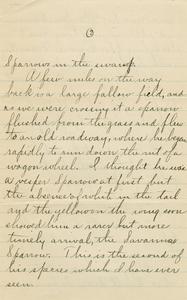 Sparrows in the swamp.
A few miles on the way
back is a large fallow field, and
as we were crossing it a sparrow
flushed from the grass and flew
to an old roadway where he began
rapidly to run down the rut of a
wagon wheel. I thought he was
a vesper sparrow at first but
the absence of white in the tail
and the yellow on the wing soon
showed him a rarer but more
timely arrival, the Savannah
Sparrow. This is the second of
his species which I have ever
seen.